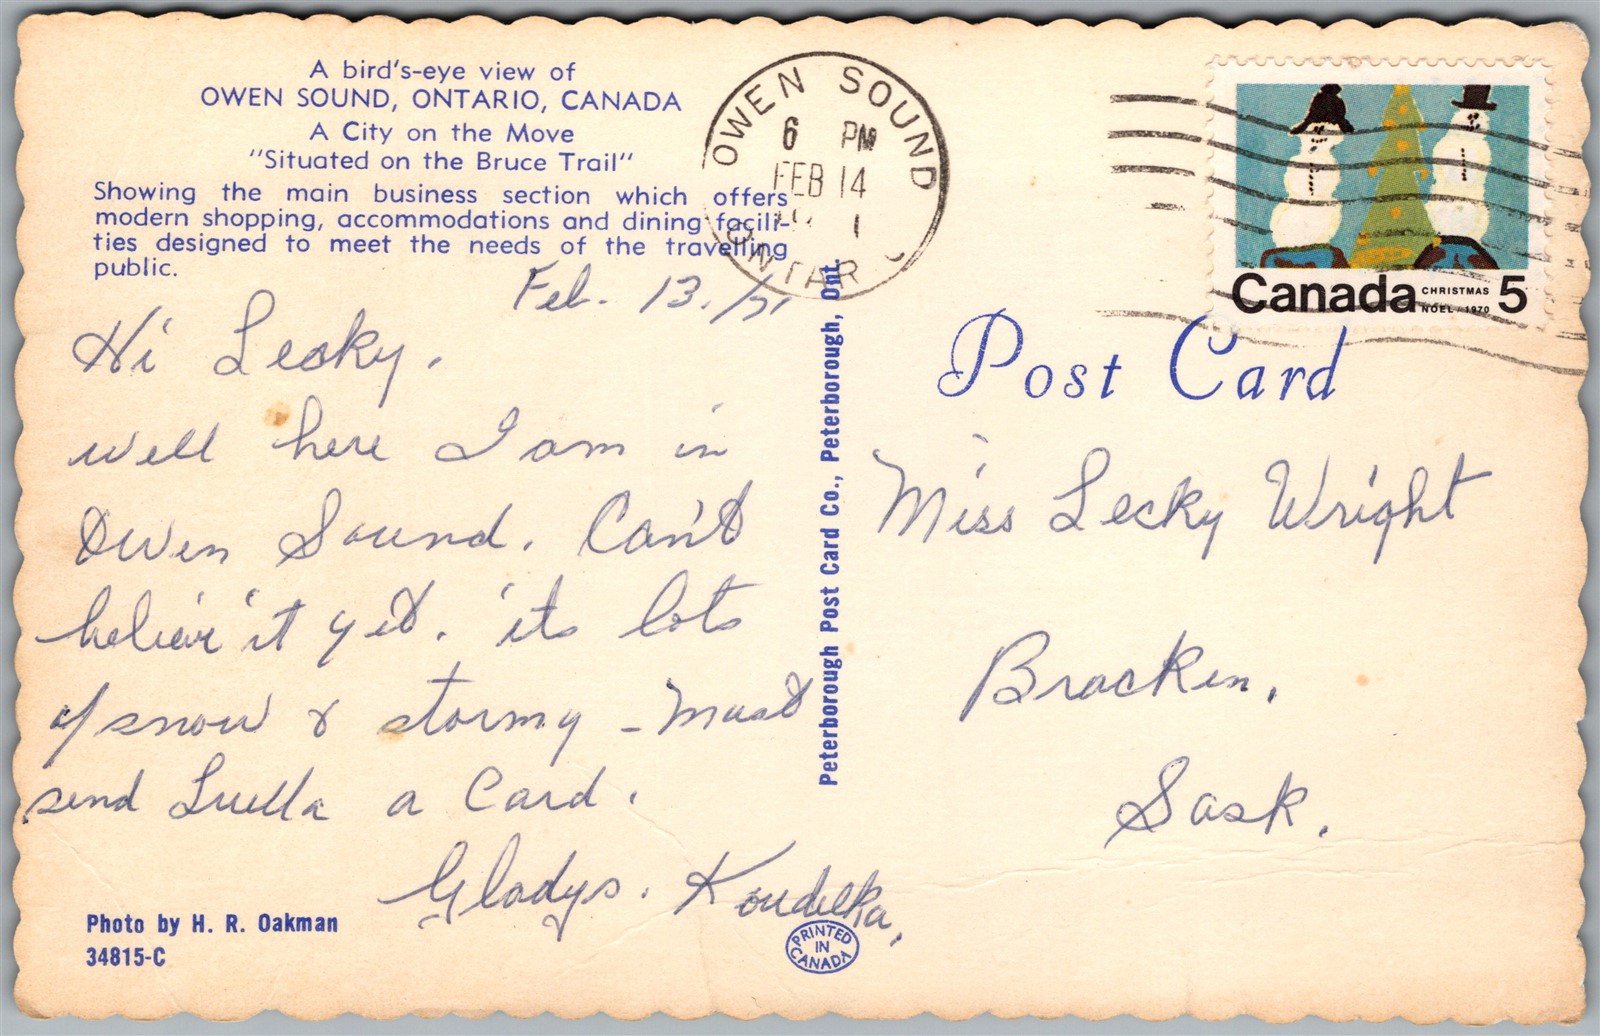 A bird's-eye view of
OWEN SOUND, ONTARIO, CANADA
A City on the Move
"Situated on the Bruce Trail"
Showing the main business section which offers
modern shopping, accommodations and dining facili-
ties designed to meet the needs of the travelling
public.
Feb. 13./71
Hi Lecky.
well here I am in
Owen Sound. Can't
believe it yet. its lots
of snow & stormy - Must
send Luella a Card.
Gladys. Koudelka,
Photo by H. R. Oakman
34815-C
Peterborough Post Card Co., Peterborough, Ont.
PRINTED
IN
CANADA
OWEN SOUND
6 PM
FEB 14
1
ONTAR
Canada CHRISTMAS 5
NOËL 1970
Post Card
Miss Lecky Wright
Bracken,
Sask.